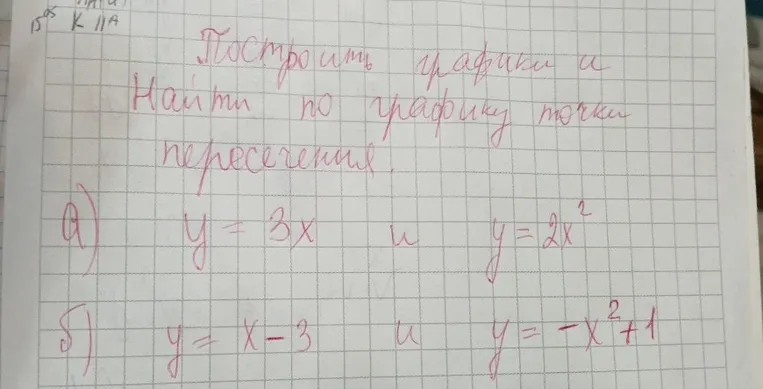 15⁰⁵ К 11А
Построить графики и
Найти по графику точки
пересечения.
а) y = 3x и y = 2x²
б) y = x - 3 и y = -x² + 1